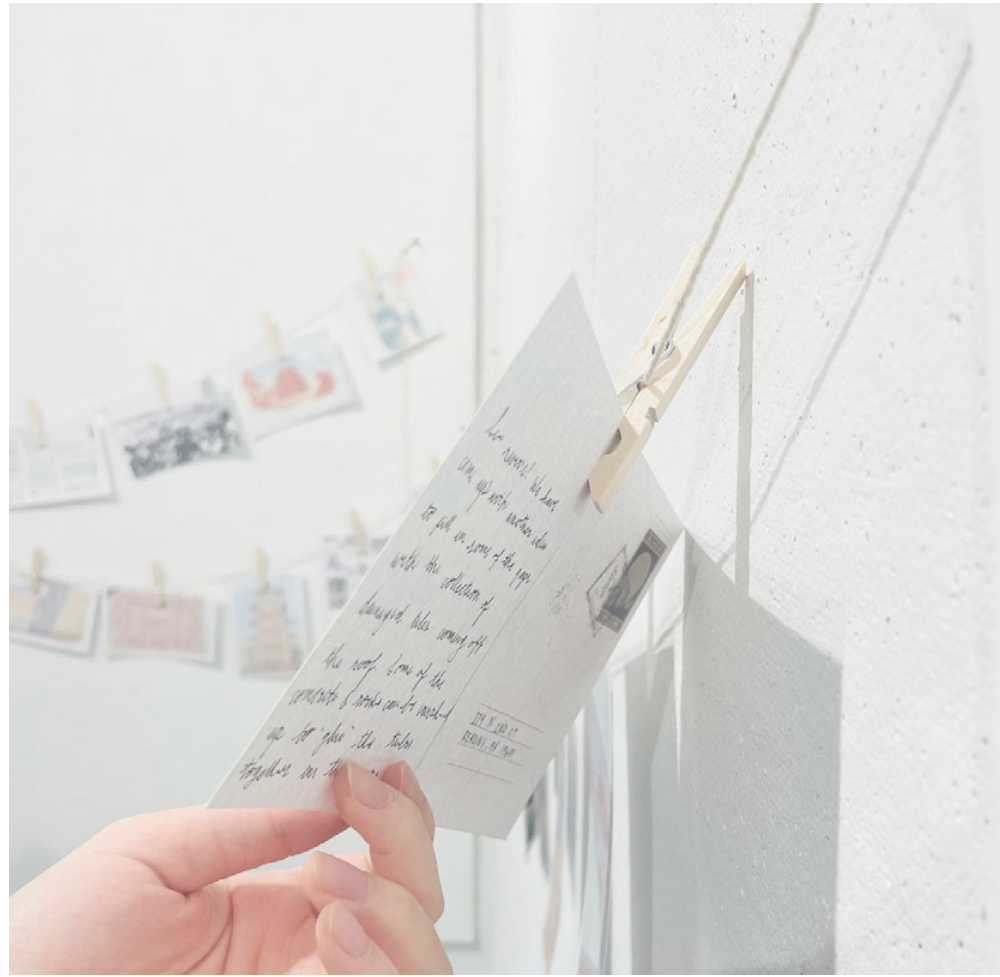 We have
come up with another idea
to fill in some of the gaps
with the collection of
damaged tiles coming off
the roof. Some of the
concrete & rocks can be mashed
up to "glue" the tiles
together in the
N 2ND ST
READING, PA